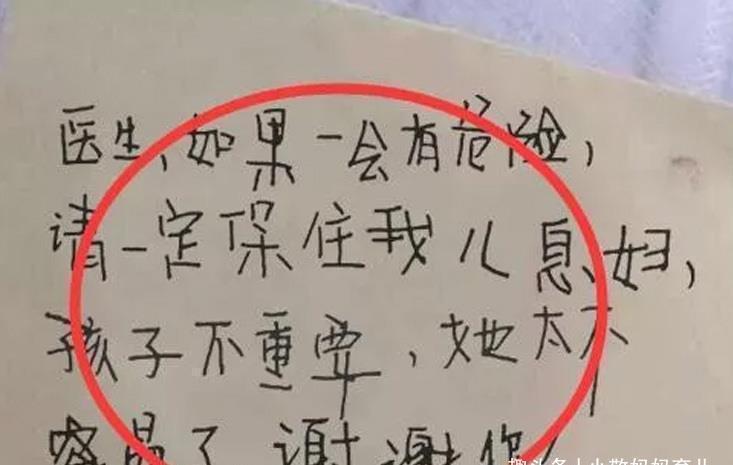 医生，如果一会有危险，
请一定保住我儿息妇，
孩子不重要，她太不
容易了 谢谢你！
趣头条 | 小敏妈妈育儿